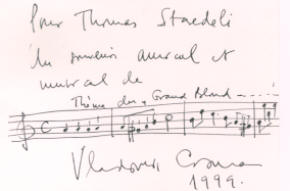 Pour Thomas Staedeli
Un souvenir amical et
musical de
Thème du « Grand Blond -----
Vladimir Cosma
1999.